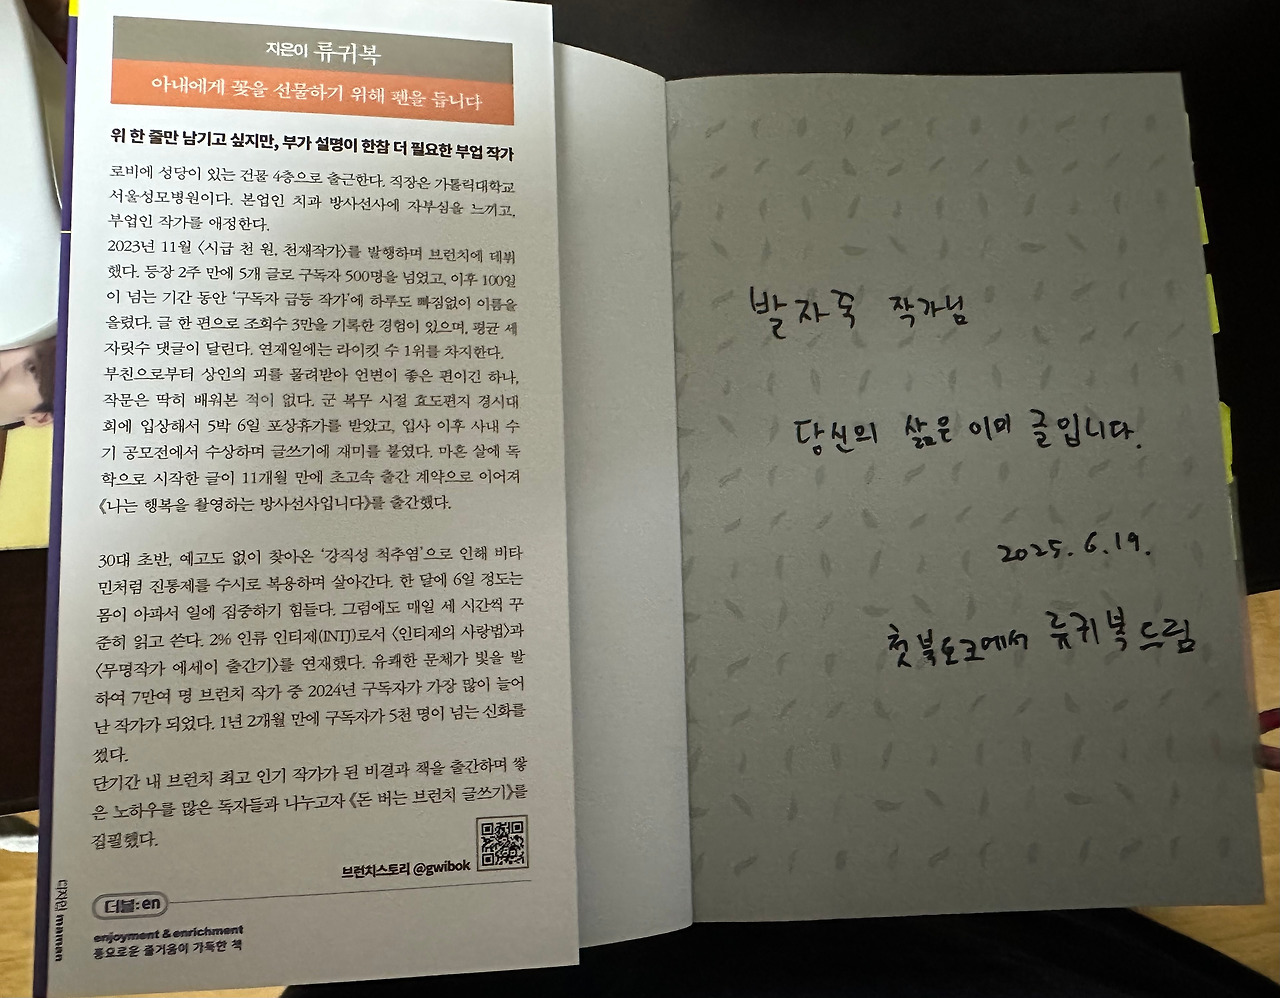 지은이 류귀복
아내에게 꽃을 선물하기 위해 펜을 듭니다
위 한 줄만 남기고 싶지만, 부가 설명이 한참 더 필요한 부업 작가
로비에 성당이 있는 건물 4층으로 출근한다. 직장은 가톨릭대학교
서울성모병원이다. 본업인 치과 방사선사에 자부심을 느끼고,
부업인 작가를 애정한다.
2023년 11월 〈시급 천 원, 천재작가〉를 발행하며 브런치에 데뷔
했다. 등장 2주 만에 5개 글로 구독자 500명을 넘었고, 이후 100일
이 넘는 기간 동안 '구독자 급등 작가'에 하루도 빠짐없이 이름을
올렸다. 글 한 편으로 조회수 3만을 기록한 경험이 있으며, 평균 세
자릿수 댓글이 달린다. 연재일에는 라이킷 수 1위를 차지한다.
부친으로부터 상인의 피를 물려받아 언변이 좋은 편이긴 하나,
작문은 딱히 배워본 적이 없다. 군 복무 시절 효도편지 경시대
회에 입상해서 5박 6일 포상휴가를 받았고, 입사 이후 사내 수
기 공모전에서 수상하며 글쓰기에 재미를 붙였다. 마흔 살에 독
학으로 시작한 글이 11개월 만에 초고속 출간 계약으로 이어져
《나는 행복을 촬영하는 방사선사입니다》를 출간했다.
30대 초반, 예고도 없이 찾아온 '강직성 척추염'으로 인해 비타
민처럼 진통제를 수시로 복용하며 살아간다. 한 달에 6일 정도는
몸이 아파서 일에 집중하기 힘들다. 그럼에도 매일 세 시간씩 꾸
준히 읽고 쓴다. 2% 인류 인티제(INTJ)로서 〈인티제의 사랑법〉과
〈무명작가 에세이 출간기〉를 연재했다. 유쾌한 문체가 빛을 발
하여 7만여 명 브런치 작가 중 2024년 구독자가 가장 많이 늘어
난 작가가 되었다. 1년 2개월 만에 구독자가 5천 명이 넘는 신화를
썼다.
단기간 내 브런치 최고 인기 작가가 된 비결과 책을 출간하며 쌓
은 노하우를 많은 독자들과 나누고자 《돈 버는 브런치 글쓰기》를
집필했다.
브런치스토리 @gwibok
더블:en
enjoyment & enrichment
풍요로운 즐거움이 가득한 책
디자인 maman
발자국 작가님
당신의 삶은 이미 글입니다.
2025. 6. 19.
첫 북토크에서 류귀복 드림